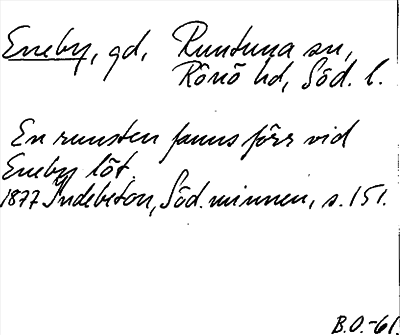 Eneby, gd, Runtuna sn,
Rönö hd, Söd. l.
En runsten fanns förr vid
Eneby löt.
1877 Indebetou, Söd. minnen, s. 151.
B.O.-61.